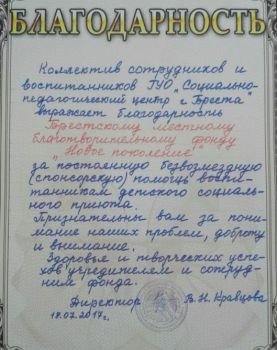 БЛАГОДАРНОСТЬ
Коллектив сотрудников и
воспитанников ГУО „Социально-
педагогический центр г. Бреста"
выражает благодарность
Брестскому местному
благотворительному фонду
„Новое поколение"
за постоянную безвозмездную
(спонсорскую) помощь воспи-
танникам детского социаль-
ного приюта.
Признательны вам за пони-
мание наших проблем, доброту
и внимание.
Здоровья и творческих успе-
хов учредителям и сотруд-
никам фонда.
Директор В. Н. Кравцова
18.07.2017г.